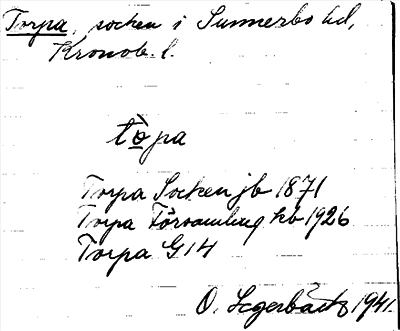 Torpa, socken i Sunnerbo hd,
Kronob. l.
tòpa
Torpa Socken jb 1871
Torpa Församling kb 1926
Torpa G14
O. Segerbäck 1941.